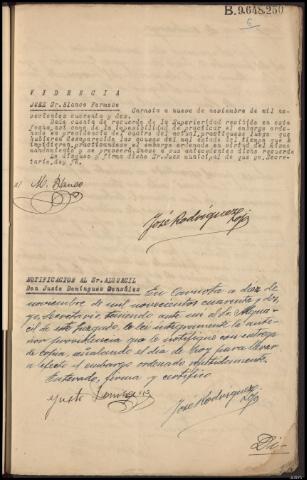 B.9.648.250
6
VIDENCIA
JUEZ Sr. Blanco Ferande
a nueve de noviembre de mil no-
vecientos cuarenta y dos.
Dada cuenta de recuerdo de la Superioridad recibido en esta
fecha, así como de la imposibilidad de practicar el embargo ordena-
do en providencia del cuatro del actual, practíquese luego que
hubieren desaparecido las causas del mal estado del tiempo que lo
impidieron, practicándose el embargo ordenado en virtud del mismo
mandamiento que precede, únase a sus antecedentes dicho recuerdo
Lo dispuso y firma dicho Sr. Juez municipal de que yo, Secre-
tario, doy fe.
M. Blanco
José Rodríguez
NOTIFICACION AL Sr. ALGUACIL
Don Justo Domínguez González
En a diez de
noviembre de mil novecientos cuarenta y dos,
yo, Secretario teniendo ante mi al Sr. Algua-
cil de este juzgado, le leí íntegramente la ante-
rior providencia que le notifiqué con entrega
de copia, señalando el día de hoy para llevar
a efecto el embargo ordenado
Enterado, firma y certifico
Justo
José Rodríguez
Di-